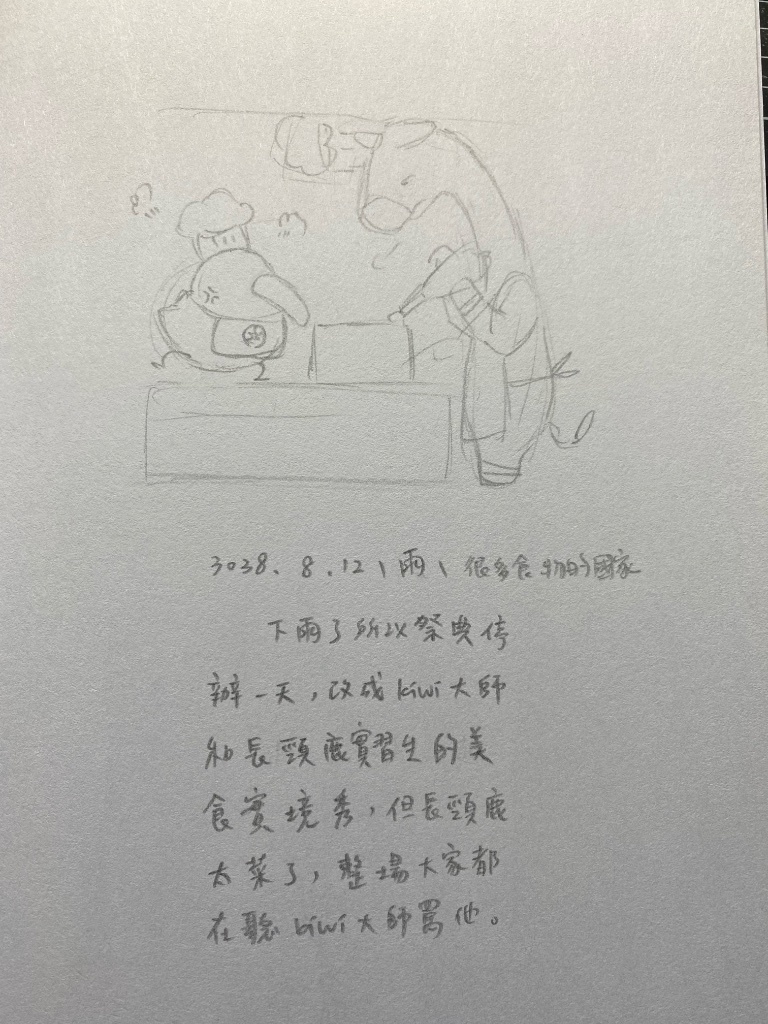 3038. 8. 12、雨、很多食物的國家
下雨了所以祭典停
辦一天，改成kiwi大師
和長頸鹿實習生的美
食實境秀，但長頸鹿
太菜了，整場大家都
在聽kiwi大師罵他。